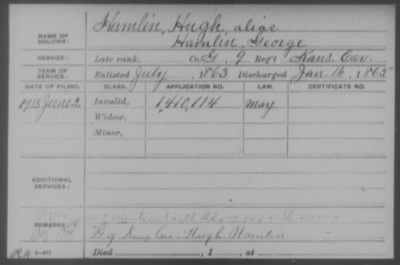 Hamlin, Hugh, alias
NAME OF SOLDIER: Hamlin, George
SERVICE: Late rank, Co. G, 9 Reg't Kans. Cav.
TERM OF SERVICE: Enlisted July, 1863 Discharged Jan. 16, 1865
DATE OF FILING. CLASS. APPLICATION NO. LAW. CERTIFICATE NO.
1913 June 2 Invalid, 1,410,114 May
Widow,
Minor,
ADDITIONAL SERVICES:
REMARKS:
Hugh Hamlin
Died , 1 , at